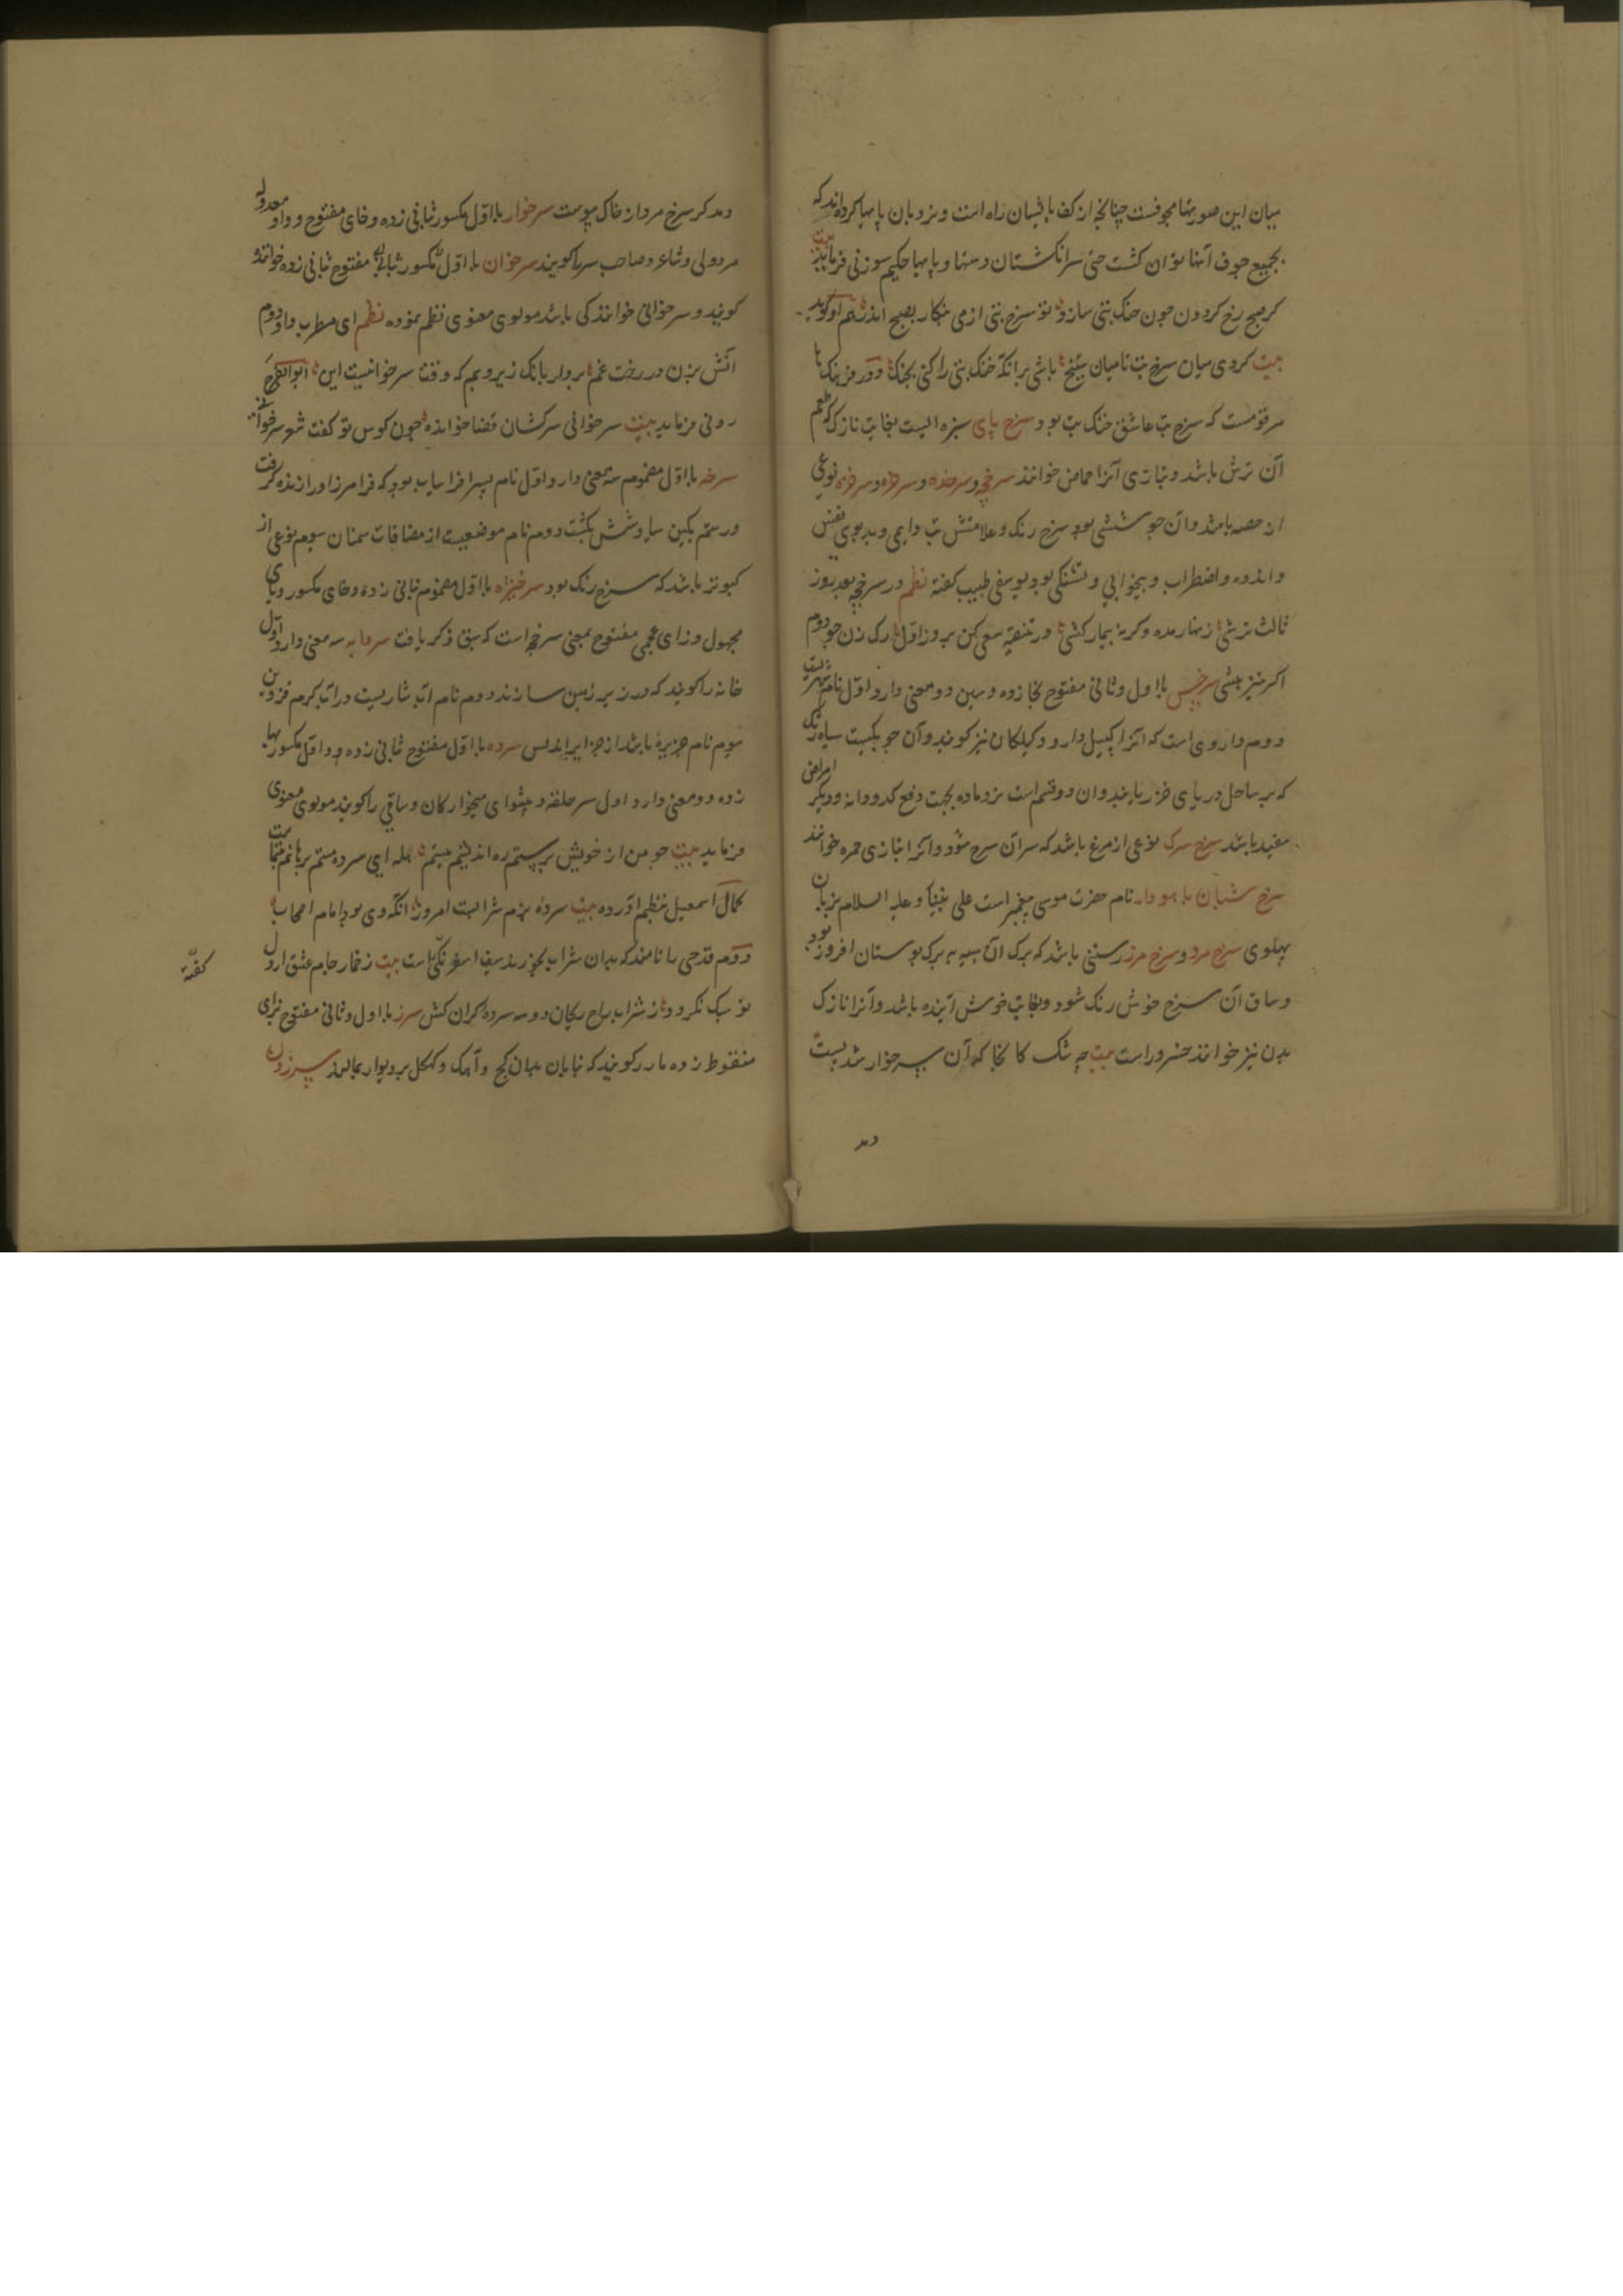 بیان این صورتها مجوفست چنانچه از کف پا فیسان راه است و نردبان پایها کرده‌اند که
بجمیع جوف آنها توان کشت حتی سر انکشتان دستها و پایها حکیم سوزنی فرماید بیت
کر صبح رخ کردون چون خنک بتی سازد تو سرخ بتی از می بنکار بصبح اندر هم او کوید
بیت کردی میان سرخ بت تا میان بپنج باشی برانکه خنک بتی را کنی بجنک و در فرهنک
مرقومست که سرخ بت عاشق خنک بت بود سرخ پای سبزه ایست بغایت نازک که طعم
آن ترش باشد و بتازی آنرا حماض خوانند سرخجه و سرخده و سرخزه و سرخژه نوعی
از حصبه باشد و آن جوششی بود سرخ رنک و علامتش تب دایمی و بدبوی نفس
و اندوه و اضطراب و بیخوابی و تشنکی بود یوسفی طبیب کفته نظم در سرخجه بعد روز
ثالث ترشی زنهار مده وکرنه بیمار کشی در تنقیه سعی کن بروز اول رک زن چو دوم
اکر نیز بیشی سرخس با اول و ثانی مفتوح بخا زده و سین دو معنی دارد اول نام شهریست
دوم داروی است که آنرا کیل دارو و کیلکان نیز کویند و آن چوبکیست سیاه رنک
که بر ساحل دریای خزر یابند و آن دو قسم است نر و ماده بجهت دفع کدودانه و دیکر امراض
مفید باشد سرخ سرک نوعی از مرغ باشد که سر آن سرخ شود و آنرا بتازی حمره خوانند
سرخ شبان با هو دار نام حضرت موسی پیغمبر است علی نبینا و علیه السلام بزبان
پهلوی سرخ مرد و سرخ مرز رستنی باشد که برک آن شبیه به برک بوستان افروز بود
و ساق آن سرخ خوش رنک شود و بغایت خوش آینده باشد و آنرا نازک
بدن نیز خوانند خسرو راست بیت چه شک کانجا که آن سرخوار شد پست
دمد
دمد کر سرخ مرد از خاک پیوست سرخوار با اول مکسور ثانی زده و خای مفتوح و واو معدوله
مردولی و شاعر و صاحب سر را کویند سرخوان با اول مکسور مفتوح ثانی زده خواننده
کویند و سرخوانی خوانندکی باشد مولوی معنوی نظم نموده نظم ای مطرب داود دم
آتش بزن در رخت غم بردار بانک زیر و بم که وقت سرخوانیست این ابوالفرج
رونی فرماید بیت سرخوانی سرکشان قضا خوانده چون کوس تو کفت شو سرخوانی
سرخه با اول مضموم سه معنی دارد اول نام پسر افراسیاب بود که فرامرز او را زنده کرفت
و رستم بکین سیاوشش بکشت دوم نام موضعیست از مضافات سمنان سوم نوعی از
کبوتر باشد که سرخ رنک بود سرخیژه با اول مضموم ثانی زده و خای مکسور و یای
مجهول و زای عجمی مفتوح بمعنی سرخجه است که سبق ذکر یافت سردابه سه معنی دارد اول
خانه را کویند که در زیر زمین سازند دوم نام آب شاریست در آب کرم قزوین
سوم نام جزیره باشد از جزایر اندلس سرده با اول مفتوح ثانی زده و دال مکسور بها
زده دو معنی دارد اول سرحلقه و پیشوای میخوارکان و ساقی را کویند مولوی معنوی
فرماید بیت چو من از خویش برستم ره اندیشه ببستم هله ای سرده مستم برهانم بتمامت
کمال اسمعیل بنظم آورده بیت سرده بزم شرابست امروز آنکه دی بود امام اصحاب
دوم قدحی را نامند که بدان شراب بخورند سیف اسفرنکی راست بیت ز خمار جام عشق ار دل
تو سبک نکردد از شراب راح ریحان دو سه سرده کران کش سرز با اول و ثانی مفتوح بزای
منقوط زده مارر کویند که بنایان بدان کج و آهک و کهکل بر دیوار بمالند سرزدن
کفته